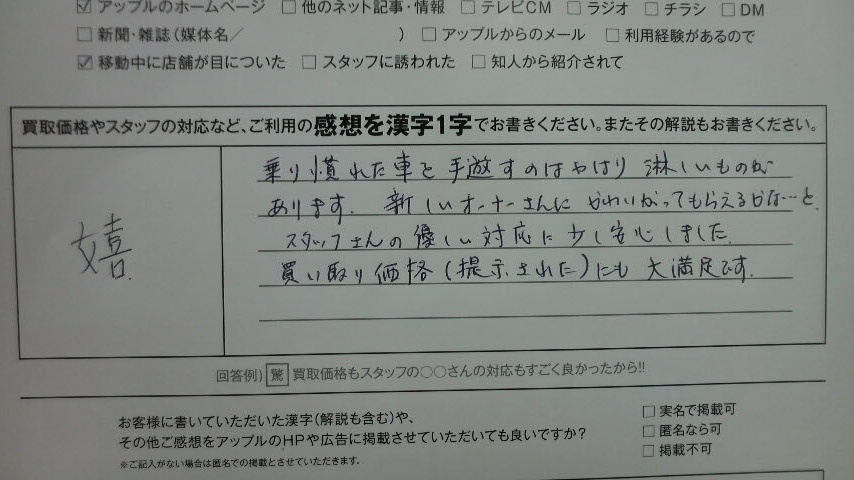 ☑ アップルのホームページ □ 他のネット記事・情報 □ テレビCM □ ラジオ □ チラシ □ DM
□ 新聞・雑誌(媒体名/ ) □ アップルからのメール □ 利用経験があるので
☑ 移動中に店舗が目についた □ スタッフに誘われた □ 知人から紹介されて
買取価格やスタッフの対応など、ご利用の感想を漢字1字でお書きください。またその解説もお書きください。
嬉
乗り慣れた車を手遊すのはやはり淋しいものが
あります. 新しいオーナーさんにかわいがってもらえるかな…と
スタッフさんの優しい対応に少し安心しました.
買い取り価格(提示された)にも大満足です.
回答例) 驚 買取価格もスタッフの○○さんの対応もすごく良かったから!!
お客様に書いていただいた漢字(解説も含む)や、
その他ご感想をアップルのHPや広告に掲載させていただいても良いですか?
※ご記入がない場合は匿名での掲載とさせていただきます.
□ 実名で掲載可
□ 匿名なら可
□ 掲載不可